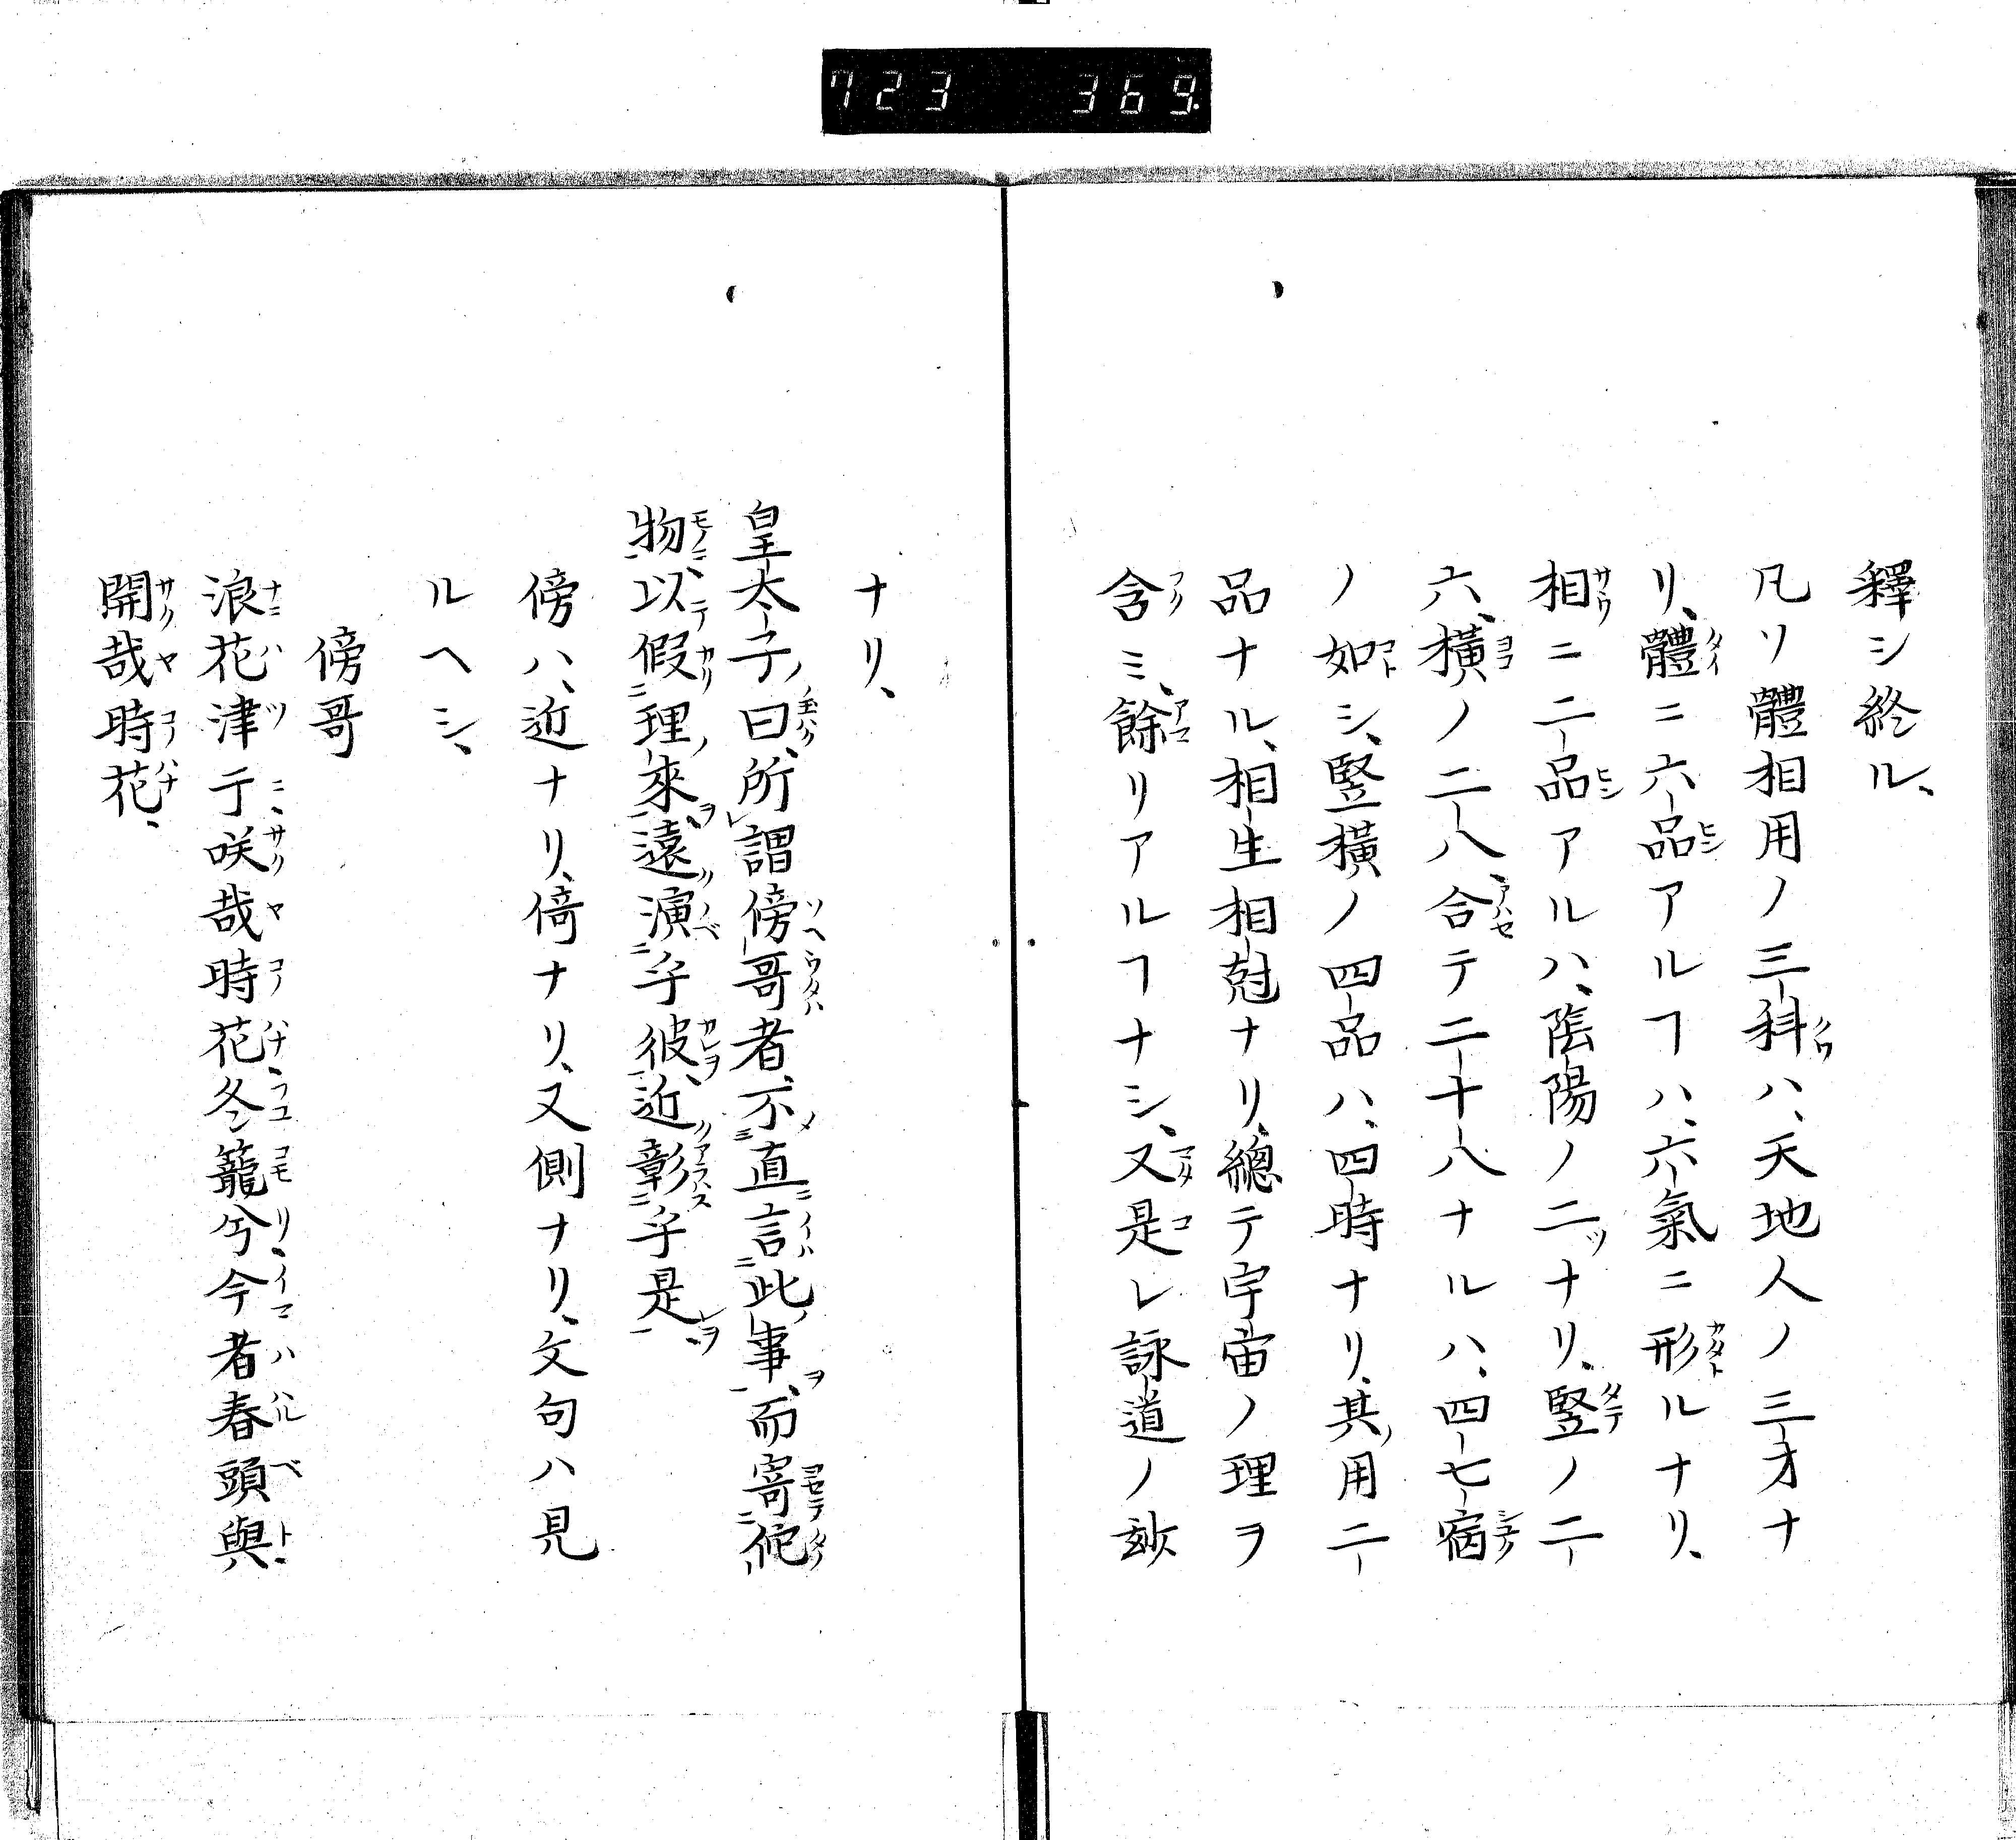 723 369
釋シ終ル、
凡ソ體相用ノ三科ハ、天地人ノ三才ナ
リ、體ニ六品アルヿハ、六氣ニ形ルナリ、
相ニ二品アルハ、陰陽ノ二ツナリ、竪ノ二
六、橫ノ二八合テ二十八ナルハ、四七宿
ノ如シ、竪橫ノ四品ハ、四時ナリ、其用二
品ナル、相生相尅ナリ、總テ宇宙ノ理ヲ
含ミ、餘リアルヿナシ、又是レ詠道ノ玅
ナリ、
皇太子曰、所謂傍哥者、不直言此事、而寄佗
物、以假理來、遠演乎彼、近彰乎是、
傍ハ、近ナリ、倚ナリ、又側ナリ、文句ハ見
ルヘシ、
傍哥
浪花津于咲哉時花、冬籠兮、今者春頭與、
開哉時花、